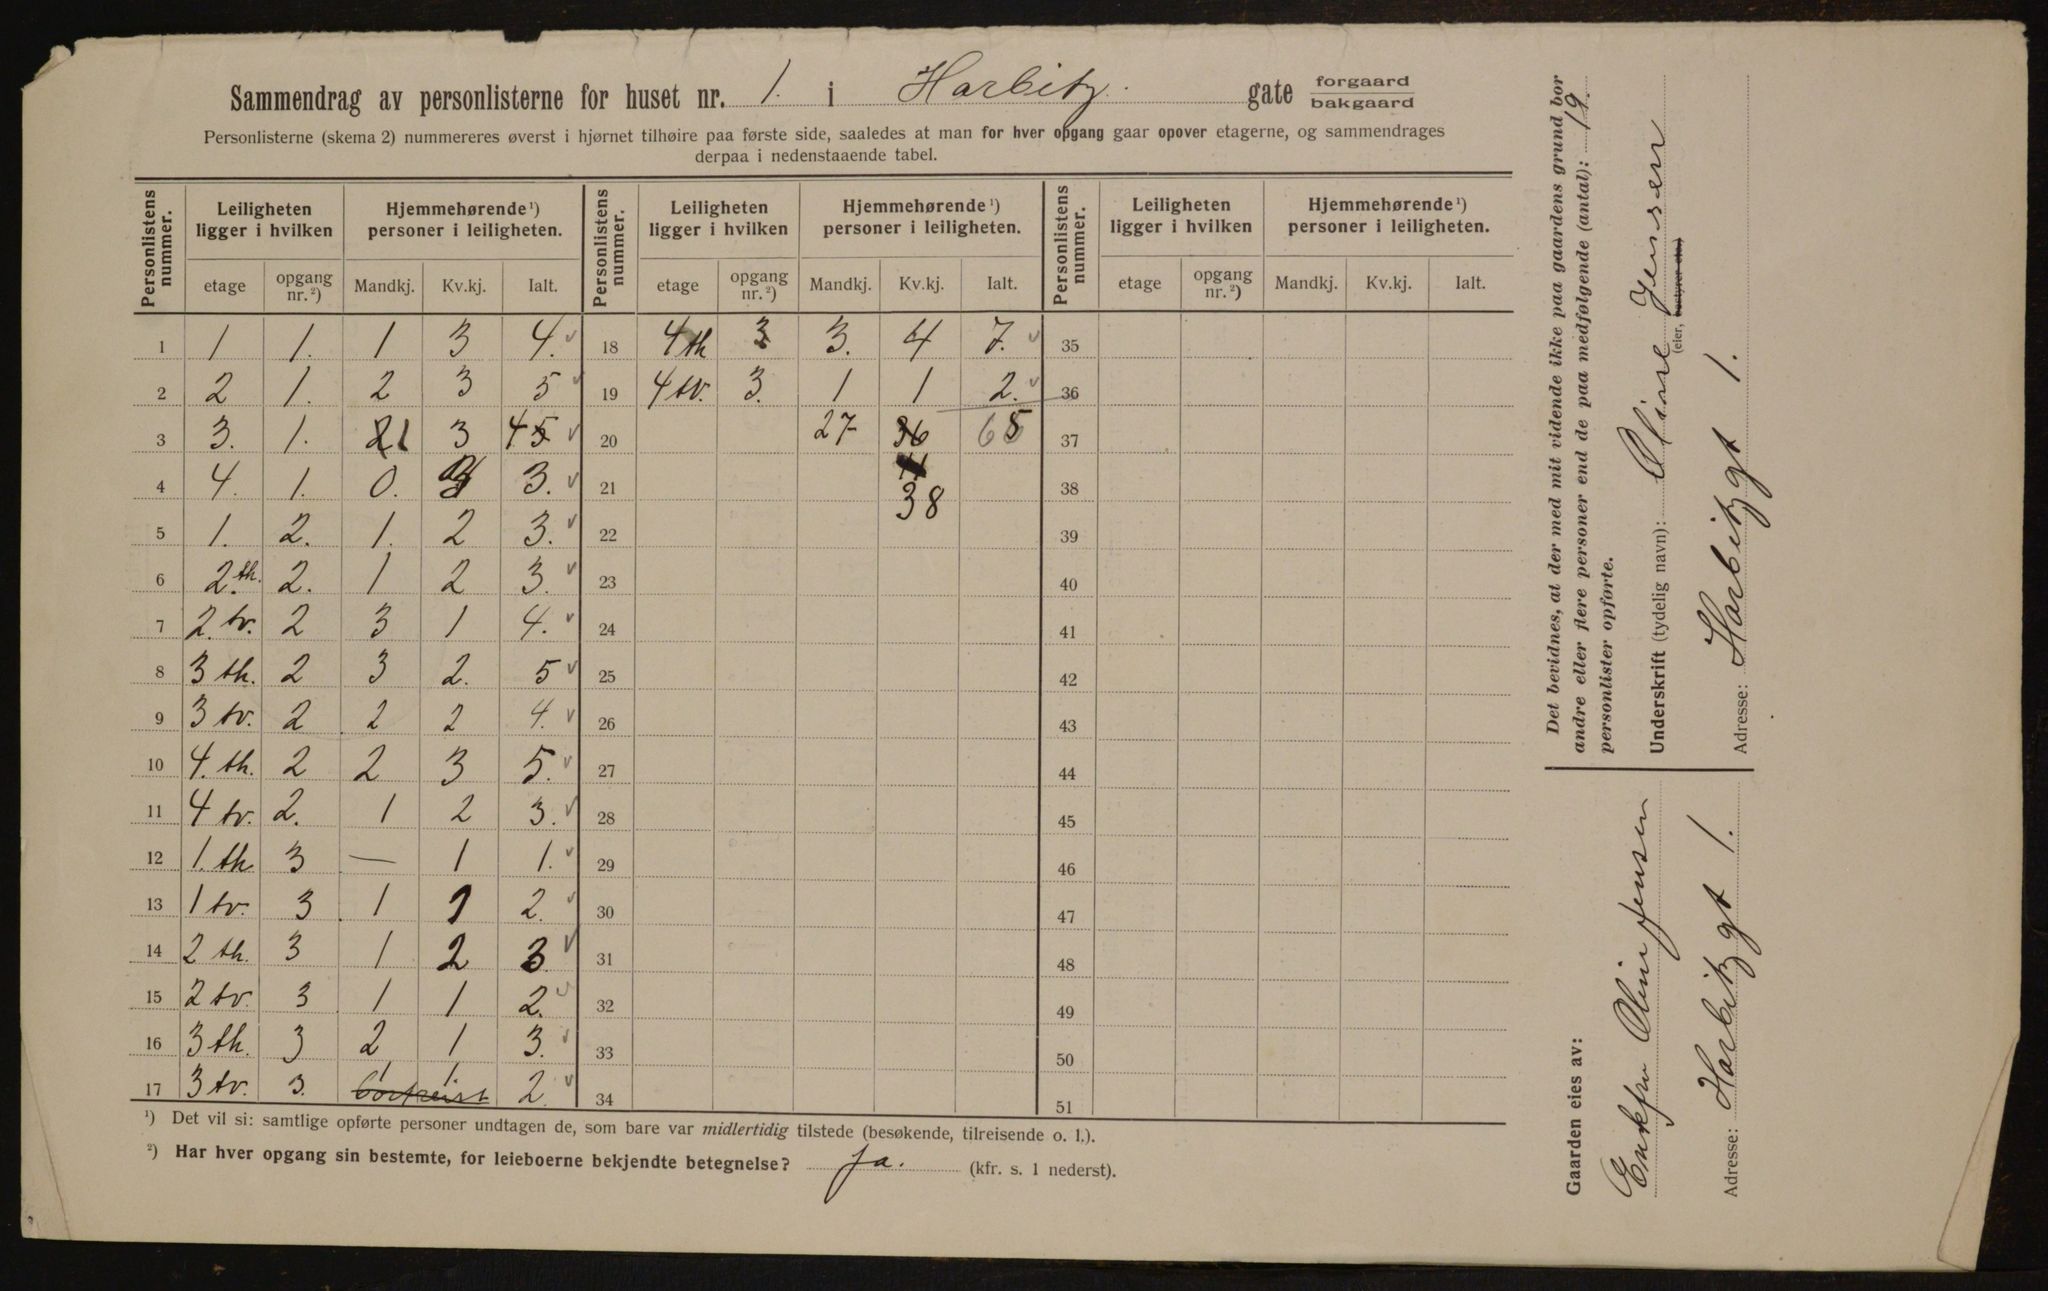 Sammendrag av personlisterne for huset nr. 1. i Harbitz. gate forgaard
bakgaard
Personlisterne (skema 2) nummereres øverst i hjørnet tilhøire paa første side, saaledes at man for hver opgang gaar opover etagerne, og sammendrages
derpaa i nedenstaaende tabel.
Personlistens nummer. Leiligheten ligger i hvilken Hjemmehørende ¹) personer i leiligheten. Personlistens nummer. Leiligheten ligger i hvilken Hjemmehørende ¹) personer i leiligheten. Personlistens nummer. Leiligheten ligger i hvilken Hjemmehørende ¹) personer i leiligheten.
etage opgang nr. ²) Mandkj. Kv.kj. Ialt. etage opgang nr. ²) Mandkj. Kv.kj. Ialt. etage opgang nr. ²) Mandkj. Kv.kj. Ialt.
1 1 1. 1 3 4. 18 4 th 3 3. 4 7. 35
2 2 1. 2 3 5 19 4 tv. 3. 1 1 2. 36
3 3. 1. 2 1 3 4 5 20 27 36 65 37
4 4. 1. 0. 3 3. 21 38 38
5 1. 2. 1. 2 3. 22 39
6 2. th. 2. 1 2 3. 23 40
7 2. tv. 2 3 1 4. 24 41
8 3 th. 2 3 2. 5 25 42
9 3 tv. 2 2 2 4. 26 43
10 4. th. 2 2 3 5. 27 44
11 4 tv. 2. 1 2 3. 28 45
12 1. th 3 — 1 1. 29 46
13 1 tv. 3 1 1 2. 30 47
14 2 th. 3 1 2 3. 31 48
15 2 tv. 3 1 1 2. 32 49
16 3 th. 3 2 1 3. 33 50
17 3 tv. 3. bortreist 1 1 2. 34 51
¹) Det vil si: samtlige opførte personer undtagen de, som bare var midlertidig tilstede (besøkende, tilreisende o. l.).
²) Har hver opgang sin bestemte, for leieboerne bekjendte betegnelse? Ja. (kfr. s. 1 nederst).
Det bevidnes, at der med mit vidende ikke paa gaardens grund bor
andre eller flere personer end de paa medfølgende (antal): 19.
personlister opførte.
Underskrift (tydelig navn): Oline Jensen
(eier, bestyrer etc.)
Adresse: Harbitzgt 1.
Gaarden eies av:
Enkefru Oline Jensen
Adresse: Harbitzgt 1.